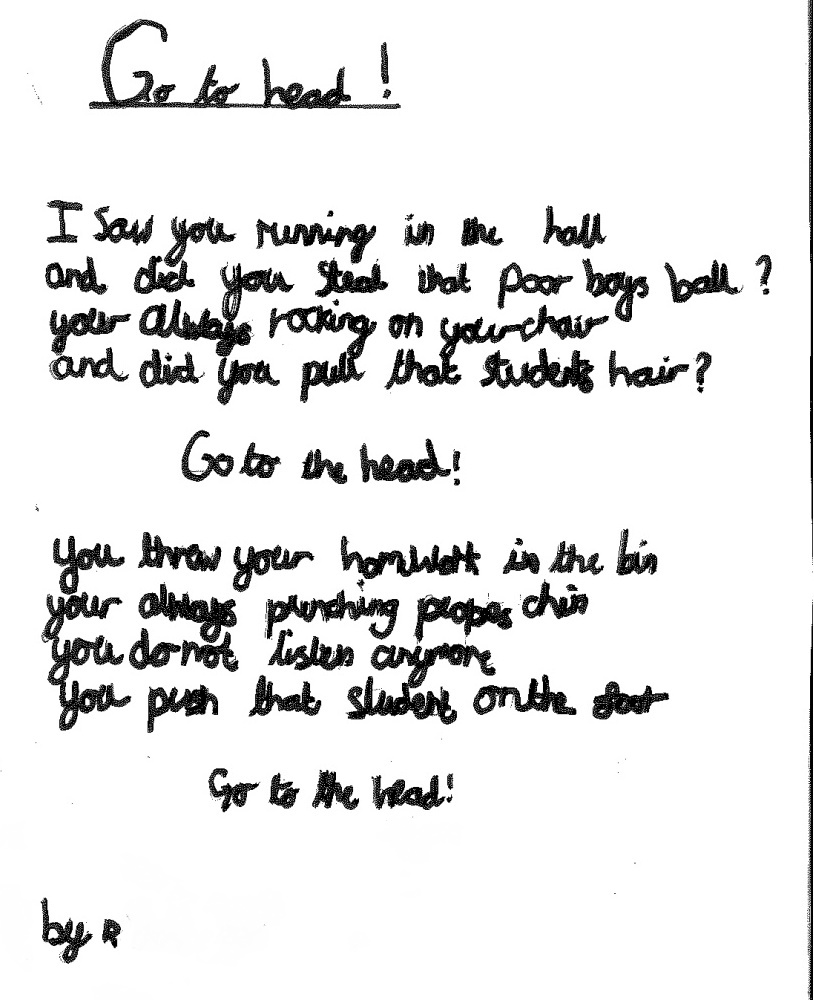 Go to head!
I saw you running in the hall
and did you steal that poor boys ball?
your always rocking on your chair
and did you pull that students hair?
Go to the head!
you threw your homwork in the bin
your always punching peopes chin
you do not listen anymore
you push that student on the
Go to the head!
by R